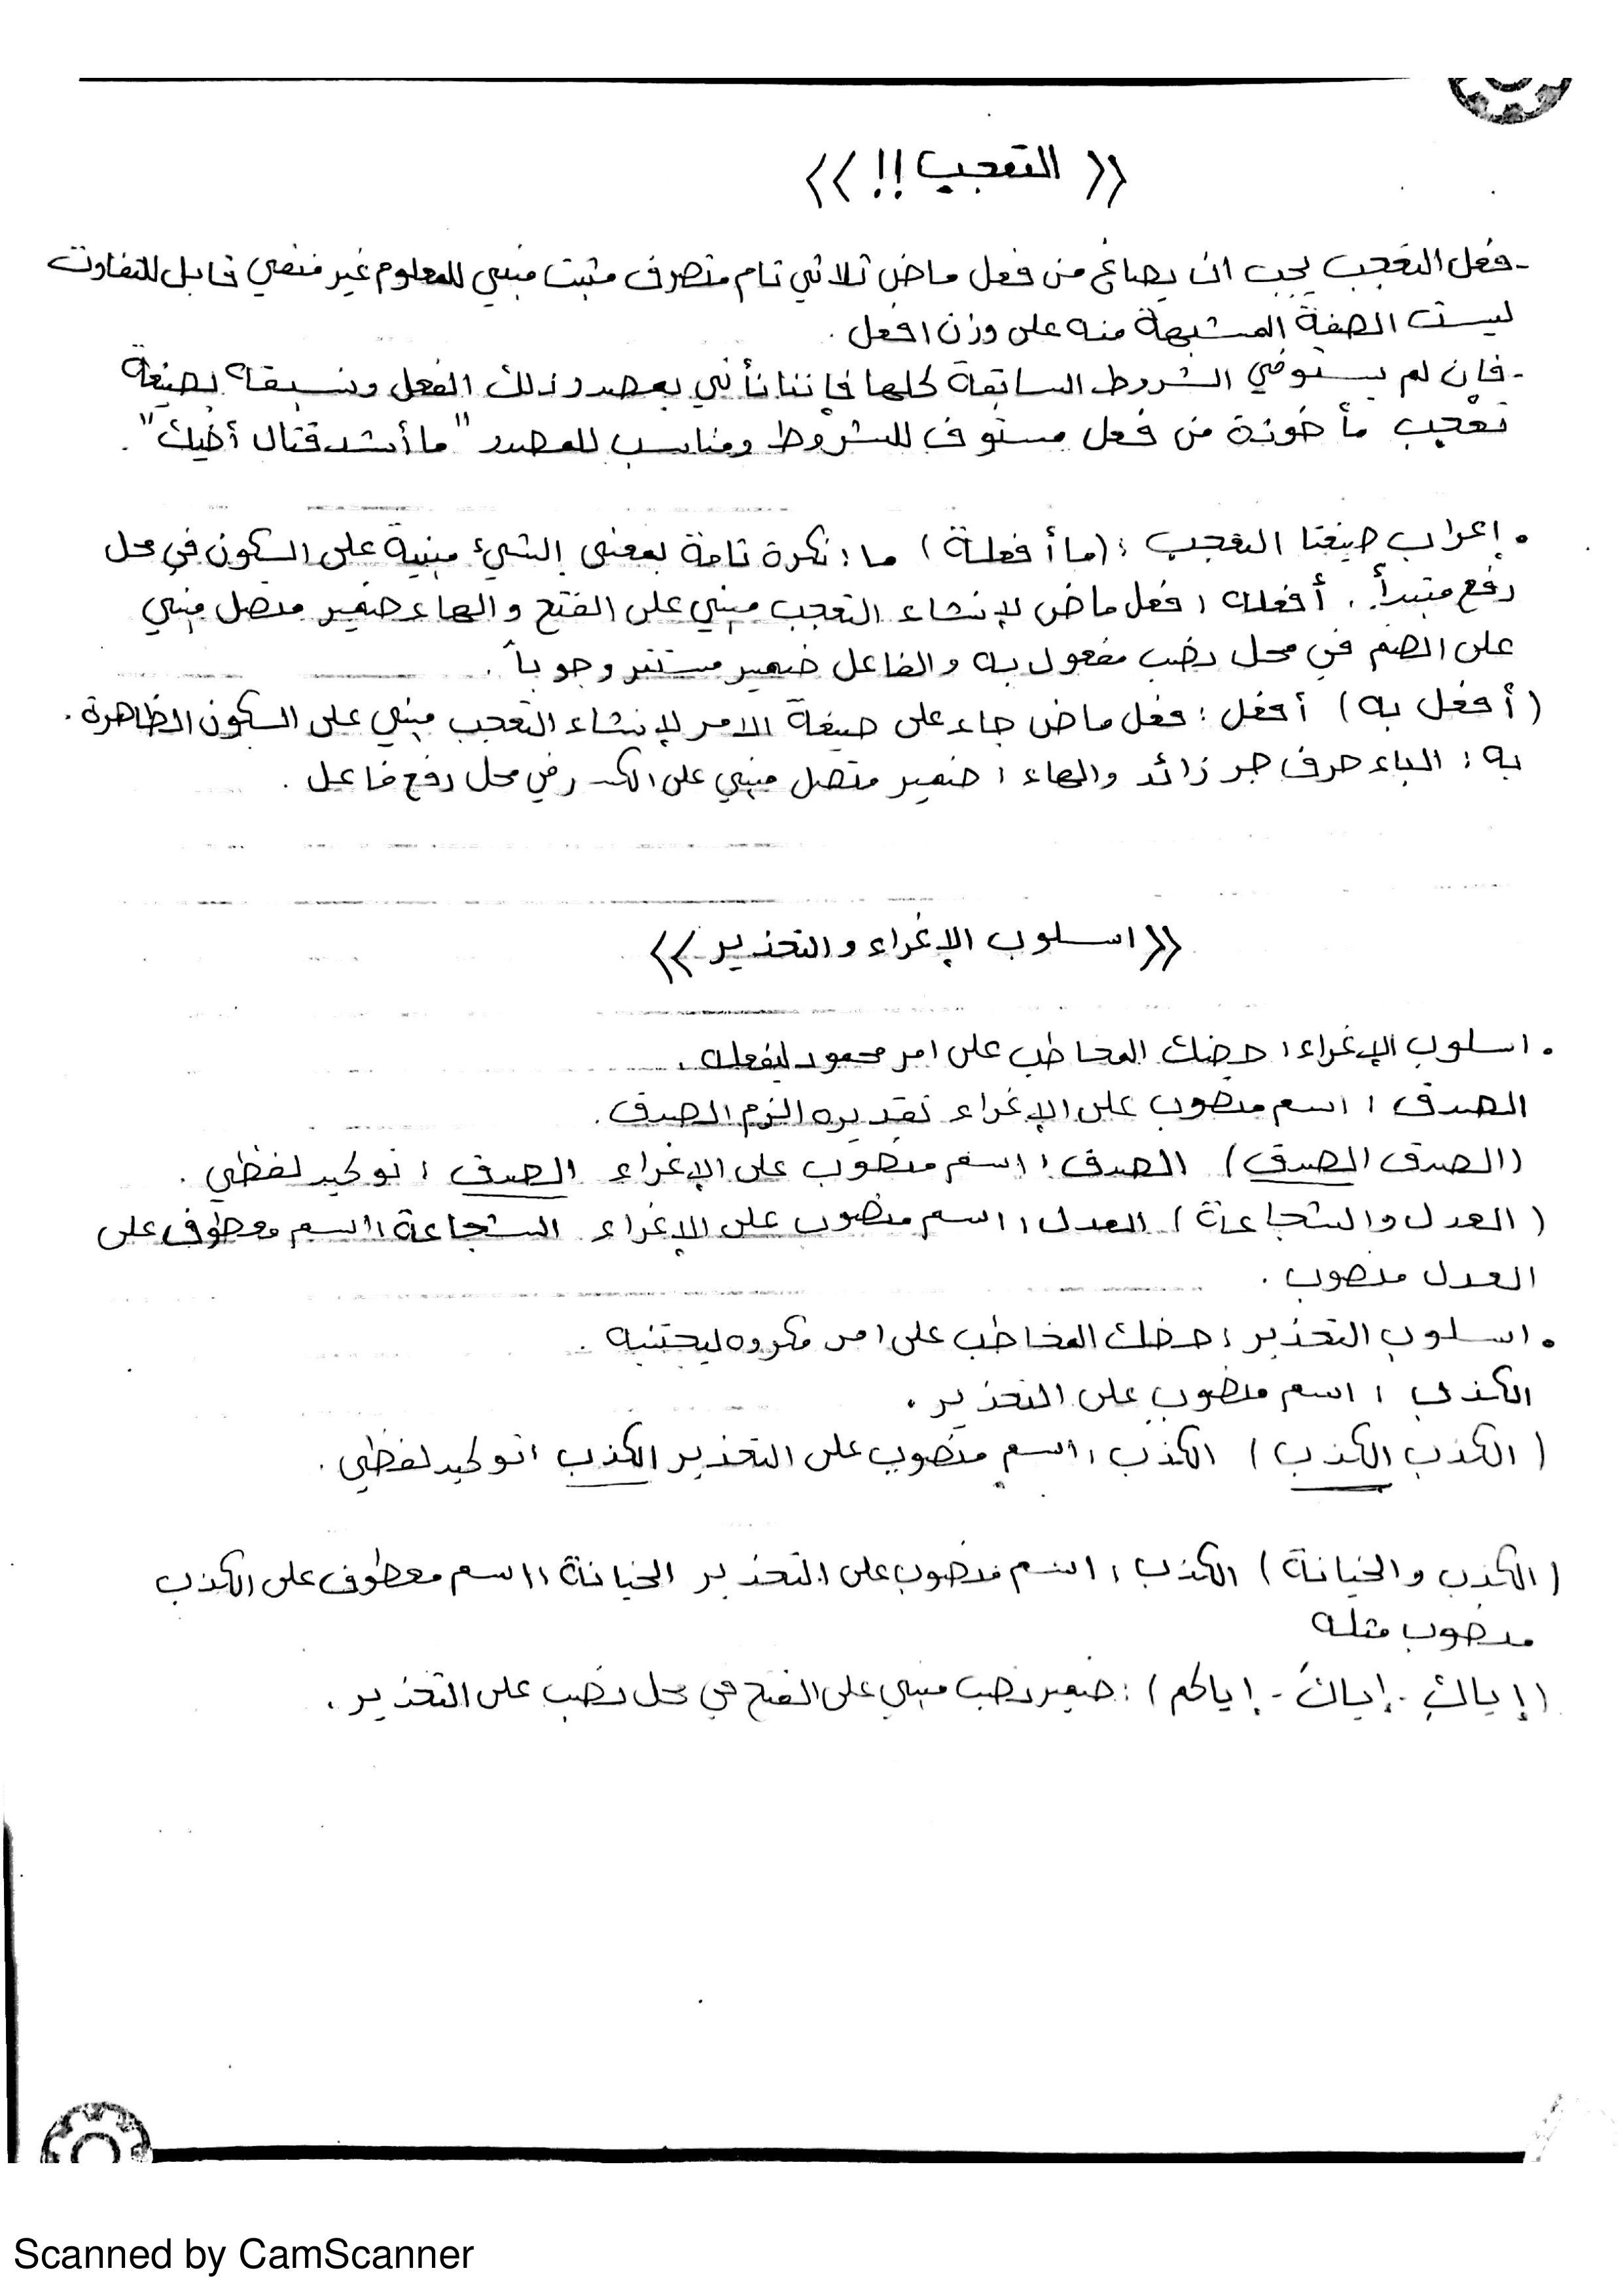 << التعجب !! >>
- فعل التعجب يجب ان يصاغ من فعل ماض ثلاثي تام متصرف مثبت مبني للمعلوم غير منفي قابل للتفاوت
ليست الصفة المشبهة منه على وزن افعل .
- فإن لم يستوفي الشروط السابقة كلها فإننا نأتي بمصدر ذلك الفعل ونسبقه بصيغة
تعجب مأخوذة من فعل مستوف للشروط ومناسب للمصدر "ما أشد قتال أخيك" .
• إعراب صيغتا التعجب : (ما أفعلة) ما : نكرة تامة بمعنى الشيء مبنية على السكون في محل
رفع مبتدأ . أفعله : فعل ماض لإنشاء التعجب مبني على الفتح والهاء ضمير متصل مبني
على الضم في محل نصب مفعول به والفاعل ضمير مستتر وجوباً .
(أفعل به) أفعل : فعل ماض جاء على صيغة الامر لإنشاء التعجب مبني على السكون الظاهرة .
به : الباء حرف جر زائد والهاء : ضمير متصل مبني على الكسر في محل رفع فاعل .
<< اسلوب الإغراء والتحذير >>
• اسلوب الإغراء : حضك المخاطب على امر محمود ليفعله .
الصدق : اسم منصوب على الإغراء تقديره الزم الصدق .
(الصدق الصدق) الصدق : اسم منصوب على الإغراء الصدق : توكيد لفظي .
(العدل والشجاعة) العدل : اسم منصوب على الإغراء الشجاعة : اسم معطوف على
العدل منصوب .
• اسلوب التحذير : حضك المخاطب على امر مكروه ليجتنبه .
الكذب : اسم منصوب على التحذير .
(الكذب الكذب) الكذب : اسم منصوب على التحذير الكذب : توكيد لفظي .
(الكذب والخيانة) الكذب : اسم منصوب على التحذير الخيانة : اسم معطوف على الكذب
منصوب مثله
(إياكِ - إياكَ - إياكم) : ضمير نصب مبني على الفتح في محل نصب على التحذير .
Scanned by CamScanner